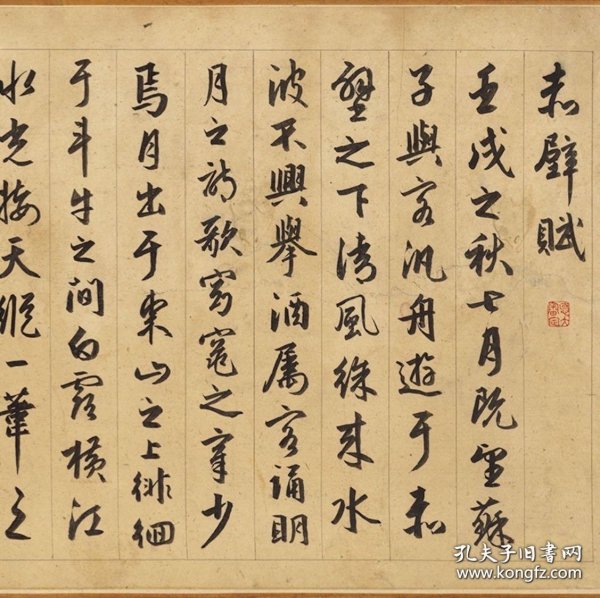 赤壁賦
壬戌之秋七月既望蘇
子與客汎舟遊于赤
壁之下清風徐来水
波不興舉酒屬客誦明
月之詩歌窈窕之章少
焉月出于東山之上徘徊
于斗牛之間白露橫江
水光接天縱一葦之
孔夫子旧书网
www.kongfz.com